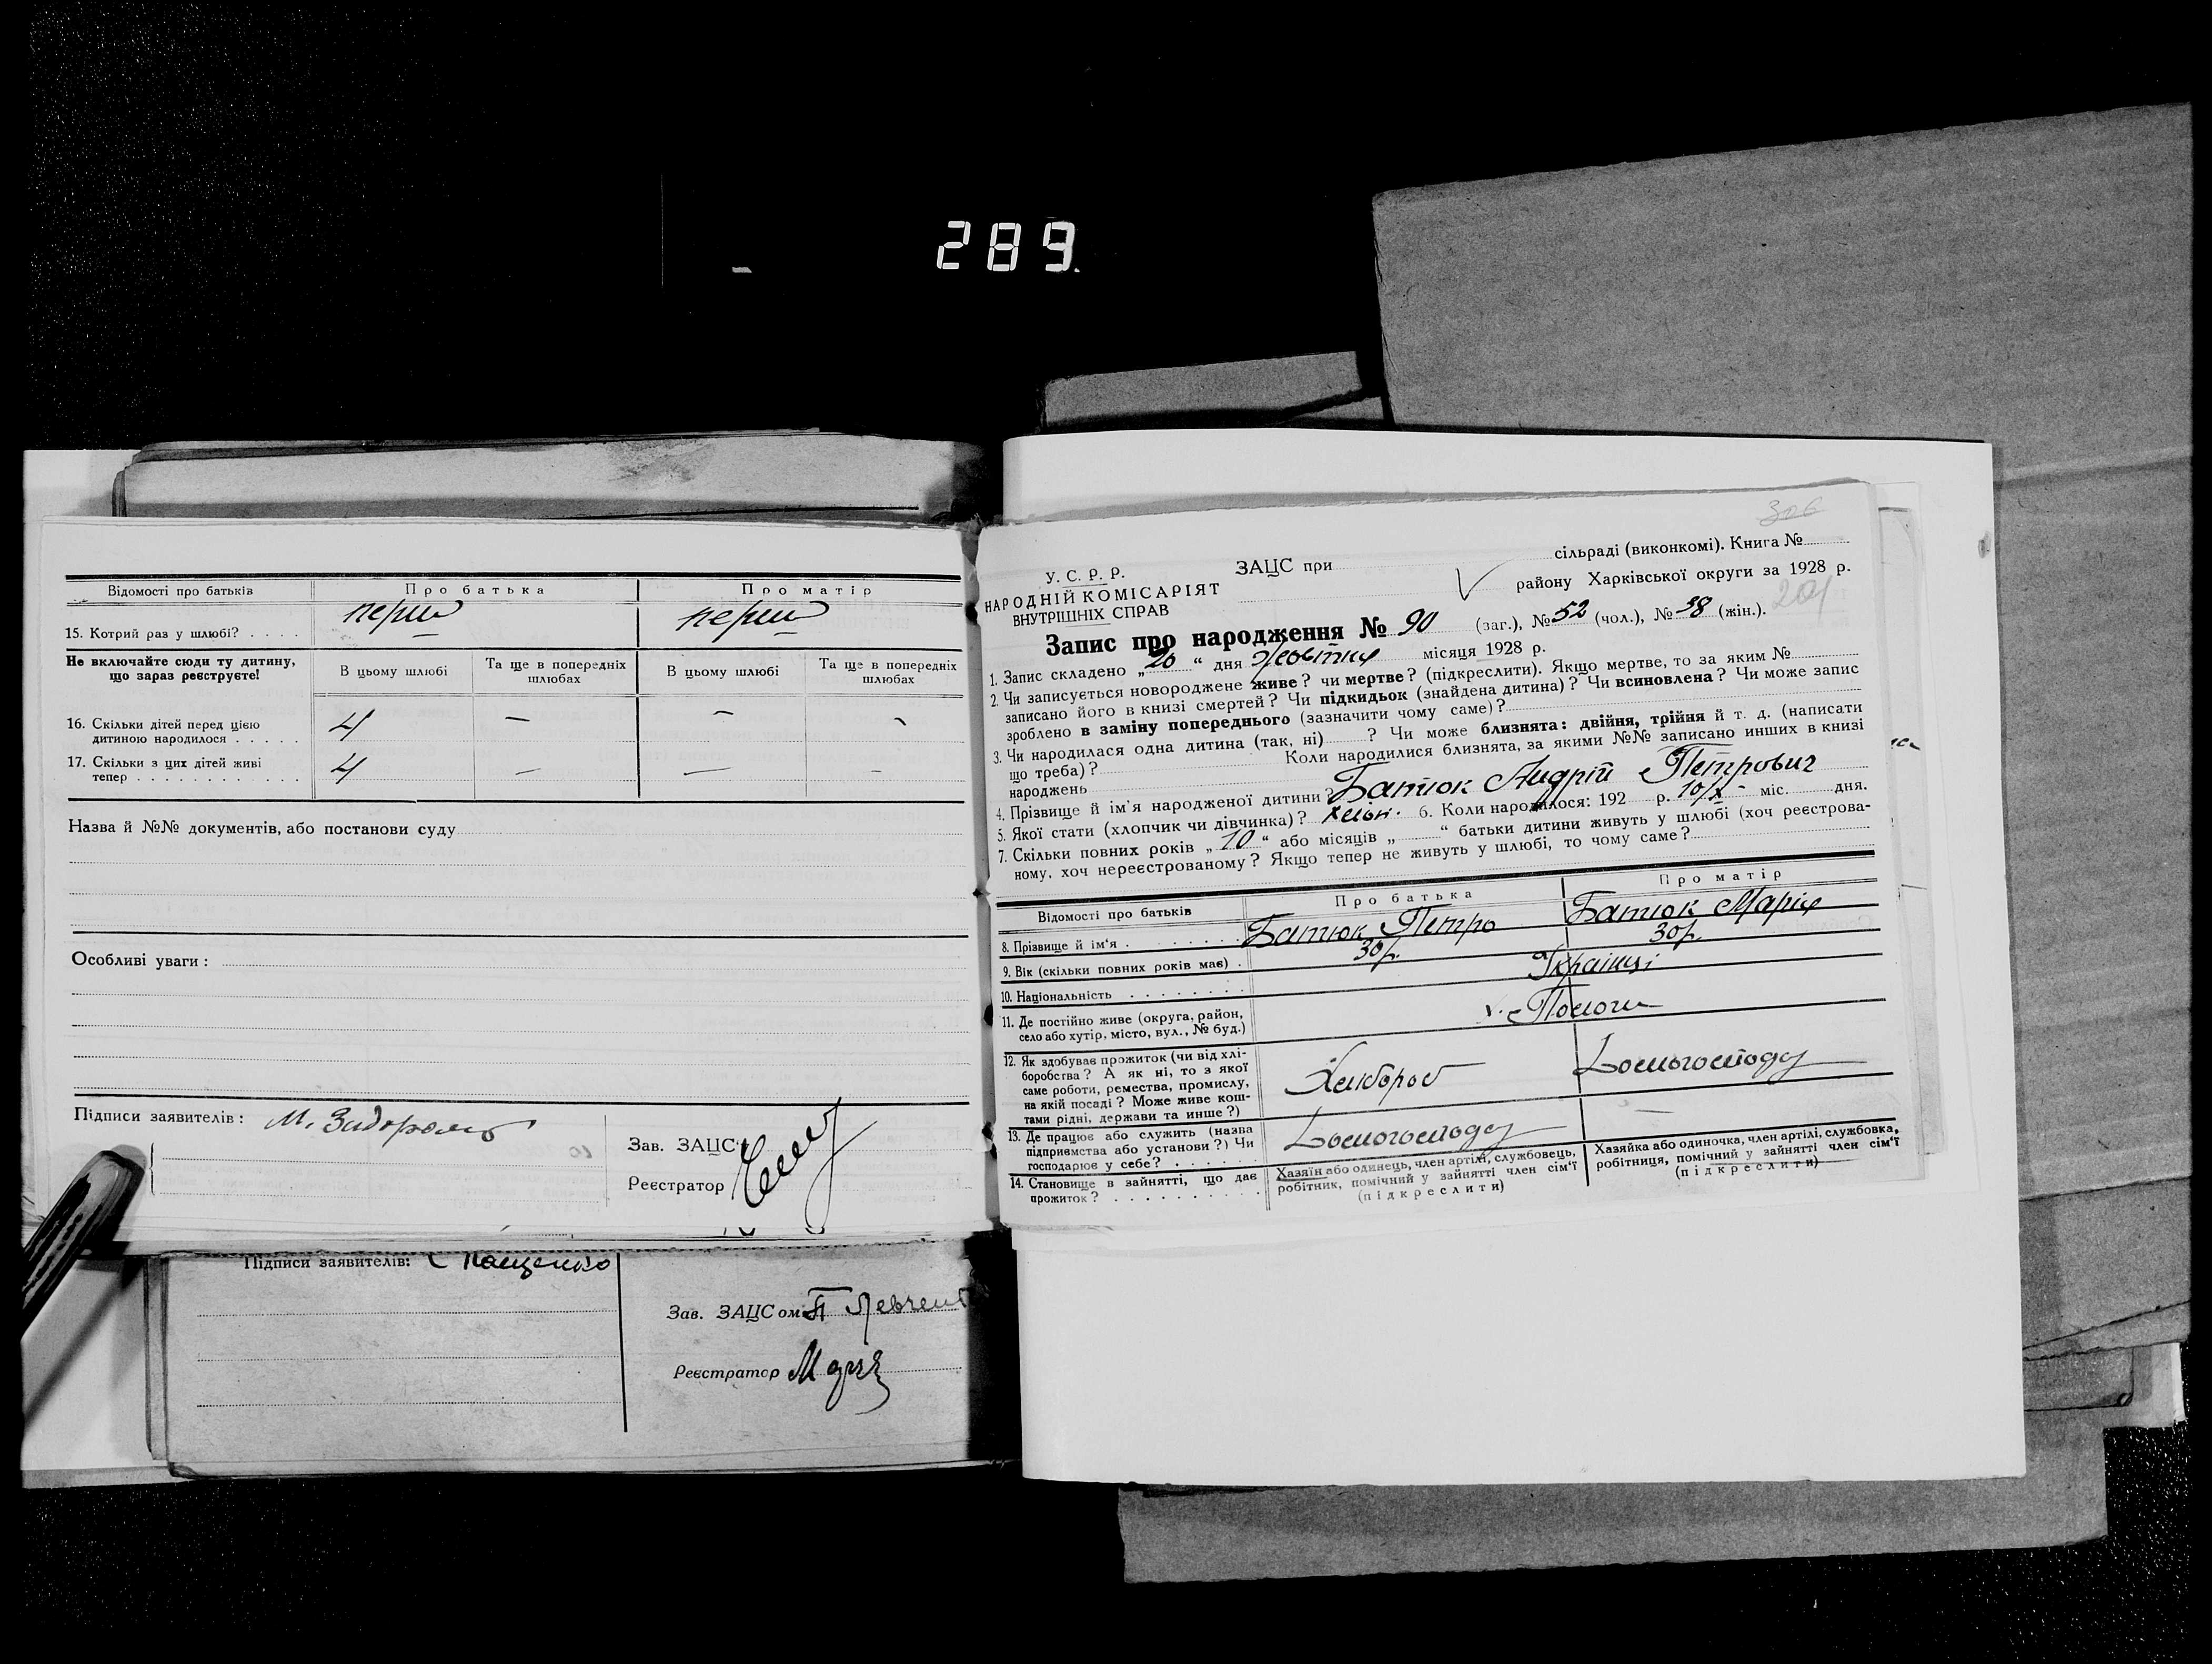 289.
Відомості про батьків Про батька Про матір
15. Котрий раз у шлюбі? . . . . перш перш
Не включайте сюди ту дитину,
що зараз реєструєте!
В цьому шлюбі
Та ще в попередніх
шлюбах
В цьому шлюбі
Та ще в попередніх
шлюбах
16. Скільки дітей перед цією
дитиною народилося . . . . . 4 — — —
17. Скільки з цих дітей живі
тепер . . . . . . . . . . . 4 — — —
Назва й №№ документів, або постанови суду
Особливі уваги :
Підписи заявителів : М.
Зав. ЗАЦС
Реєстратор
Підписи заявителів: Пащенко
Зав. ЗАЦСом П
Реєстратор
306
У. С. Р. Р.
НАРОДНІЙ КОМІСАРІЯТ
ВНУТРІШНІХ СПРАВ
ЗАЦС при сільраді (виконкомі). Книга №
району Харківської округи за 1928 р.
Запис про народження № 90 (заг.), № 52 (чол.), № 38 (жін.).
1. Запис складено „ 20 “ дня Жовтня місяця 1928 р.
2. Чи записується новороджене живе? чи мертве? (підкреслити). Якщо мертве, то за яким №
записано його в книзі смертей? Чи підкидьок (знайдена дитина)? Чи всиновлена? Чи може запис
зроблено в заміну попереднього (зазначити чому саме)?
3. Чи народилася одна дитина (так, ні) ? Чи може близнята: двійня, трійня й т. д. (написати
що треба)? Коли народилися близнята, за якими №№ записано инших в книзі
народжень
4. Прізвище й ім'я народженої дитини? Батюк Андрій Петрович
5. Якої стати (хлопчик чи дівчинка)? 6. Коли народилося: 192 р. 10/X - міс. дня.
7. Скільки повних років „ 10 “ або місяців „ “ батьки дитини живуть у шлюбі (хоч реєстрова-
ному, хоч нереєстрованому? Якщо тепер не живуть у шлюбі, то чому саме?
Відомості про батьків Про батька Про матір
8. Прізвище й ім'я . Батюк Петро Батюк Марія
9. Вік (скільки повних років має) . 30 р. 30 р.
10. Національність . . . . . . . . Українці
11. Де постійно живе (округа, район,
село або хутір, місто, вул., № буд.)
12. Як здобуває прожиток (чи від хлі-
боробства? А як ні, то з якої
саме роботи, ремества, промислу,
на якій посаді? Може живе кош-
тами рідні, держави та инше?)
Хлібороб
13. Де працює або служить (назва
підприємства або установи?) Чи
господарює у себе? . . . . . . —
14. Становище в зайнятті, що дає
прожиток? . . . . . . . . . .
Хазяїн або одинець, член артілі, службовець,
робітник, помічний у зайнятті член сім'ї
(підкреслити)
Хазяйка або одиночка, член артілі, службовка,
робітниця, помічний у зайнятті член сім'ї
(підкреслити)